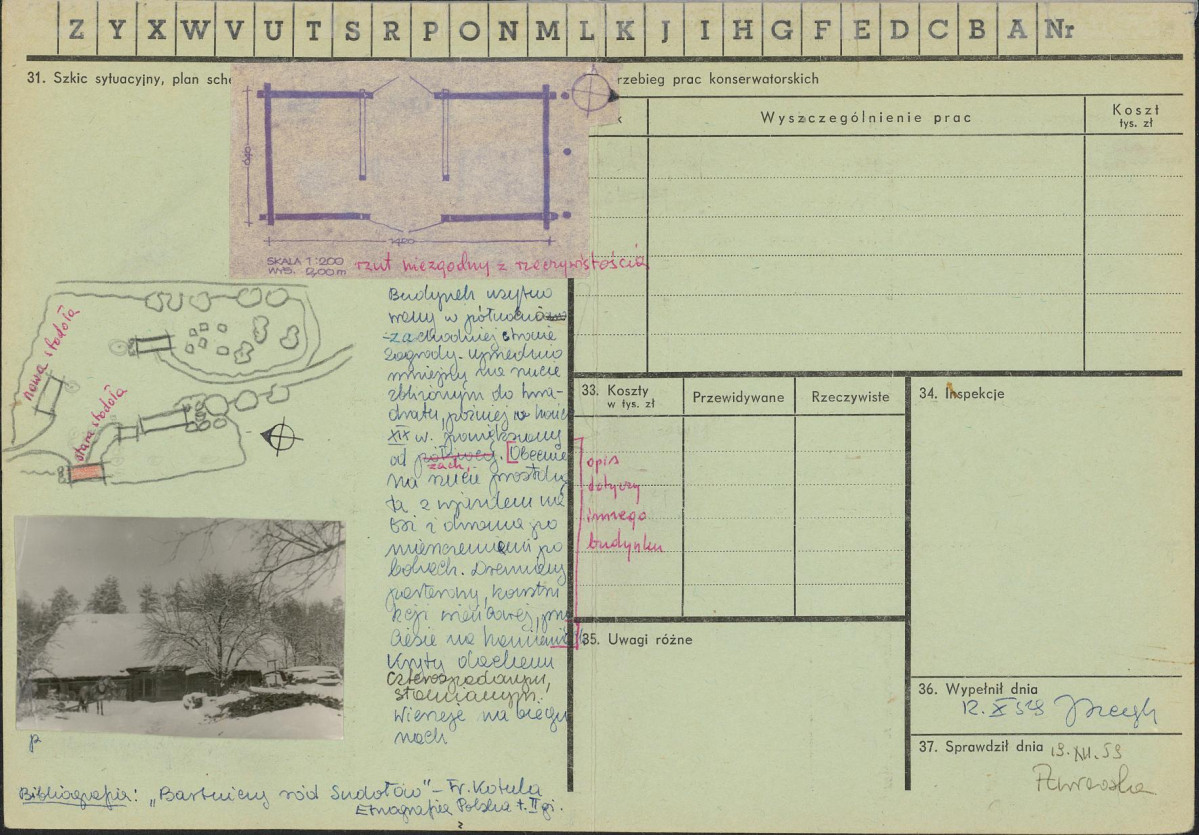 Z Y X W V U T S R P O N M L K J I H G F E D C B A Nr
31. Szkic sytuacyjny, plan sche
rzebieg prac konserwatorskich
k
Wyszczególnienie prac
Koszt
tys. zł
1420
SKALA 1:200
WYS. 2,00m
rzut niezgodny z rzeczywistością
nowa stodoła
stara stodoła
Budynek usytuo
wany w północno
-zachodniej stronie
zagrody. Uprzednio
mniejszy na rzucie
zbliżonym do kwa-
dratu, później w końcu
XIX w. powiększony
od
zach.
. [Obecnie
na rzucie prostoką
ta z wjazdem na
osi i dwoma po
mieszczeniami po
bokach. Drewniany
parterowy, konstru
kcji wieńcowej, przy
ciesie na kamieniu]
Kryty dachem
czterospadowym,
słomianym.
Wierzeje na biegu
nach
opis
dotyczy
innego
budynku
33. Koszty
w tys. zł
Przewidywane
Rzeczywiste
34. Inspekcje
35. Uwagi różne
36. Wypełnił dnia
12. X 59
37. Sprawdził dnia
19. XII. 59
p
Bibliografia: „Bartnicy ród Sudołów" – Fr. Kotula
Etnografia Polska t. II